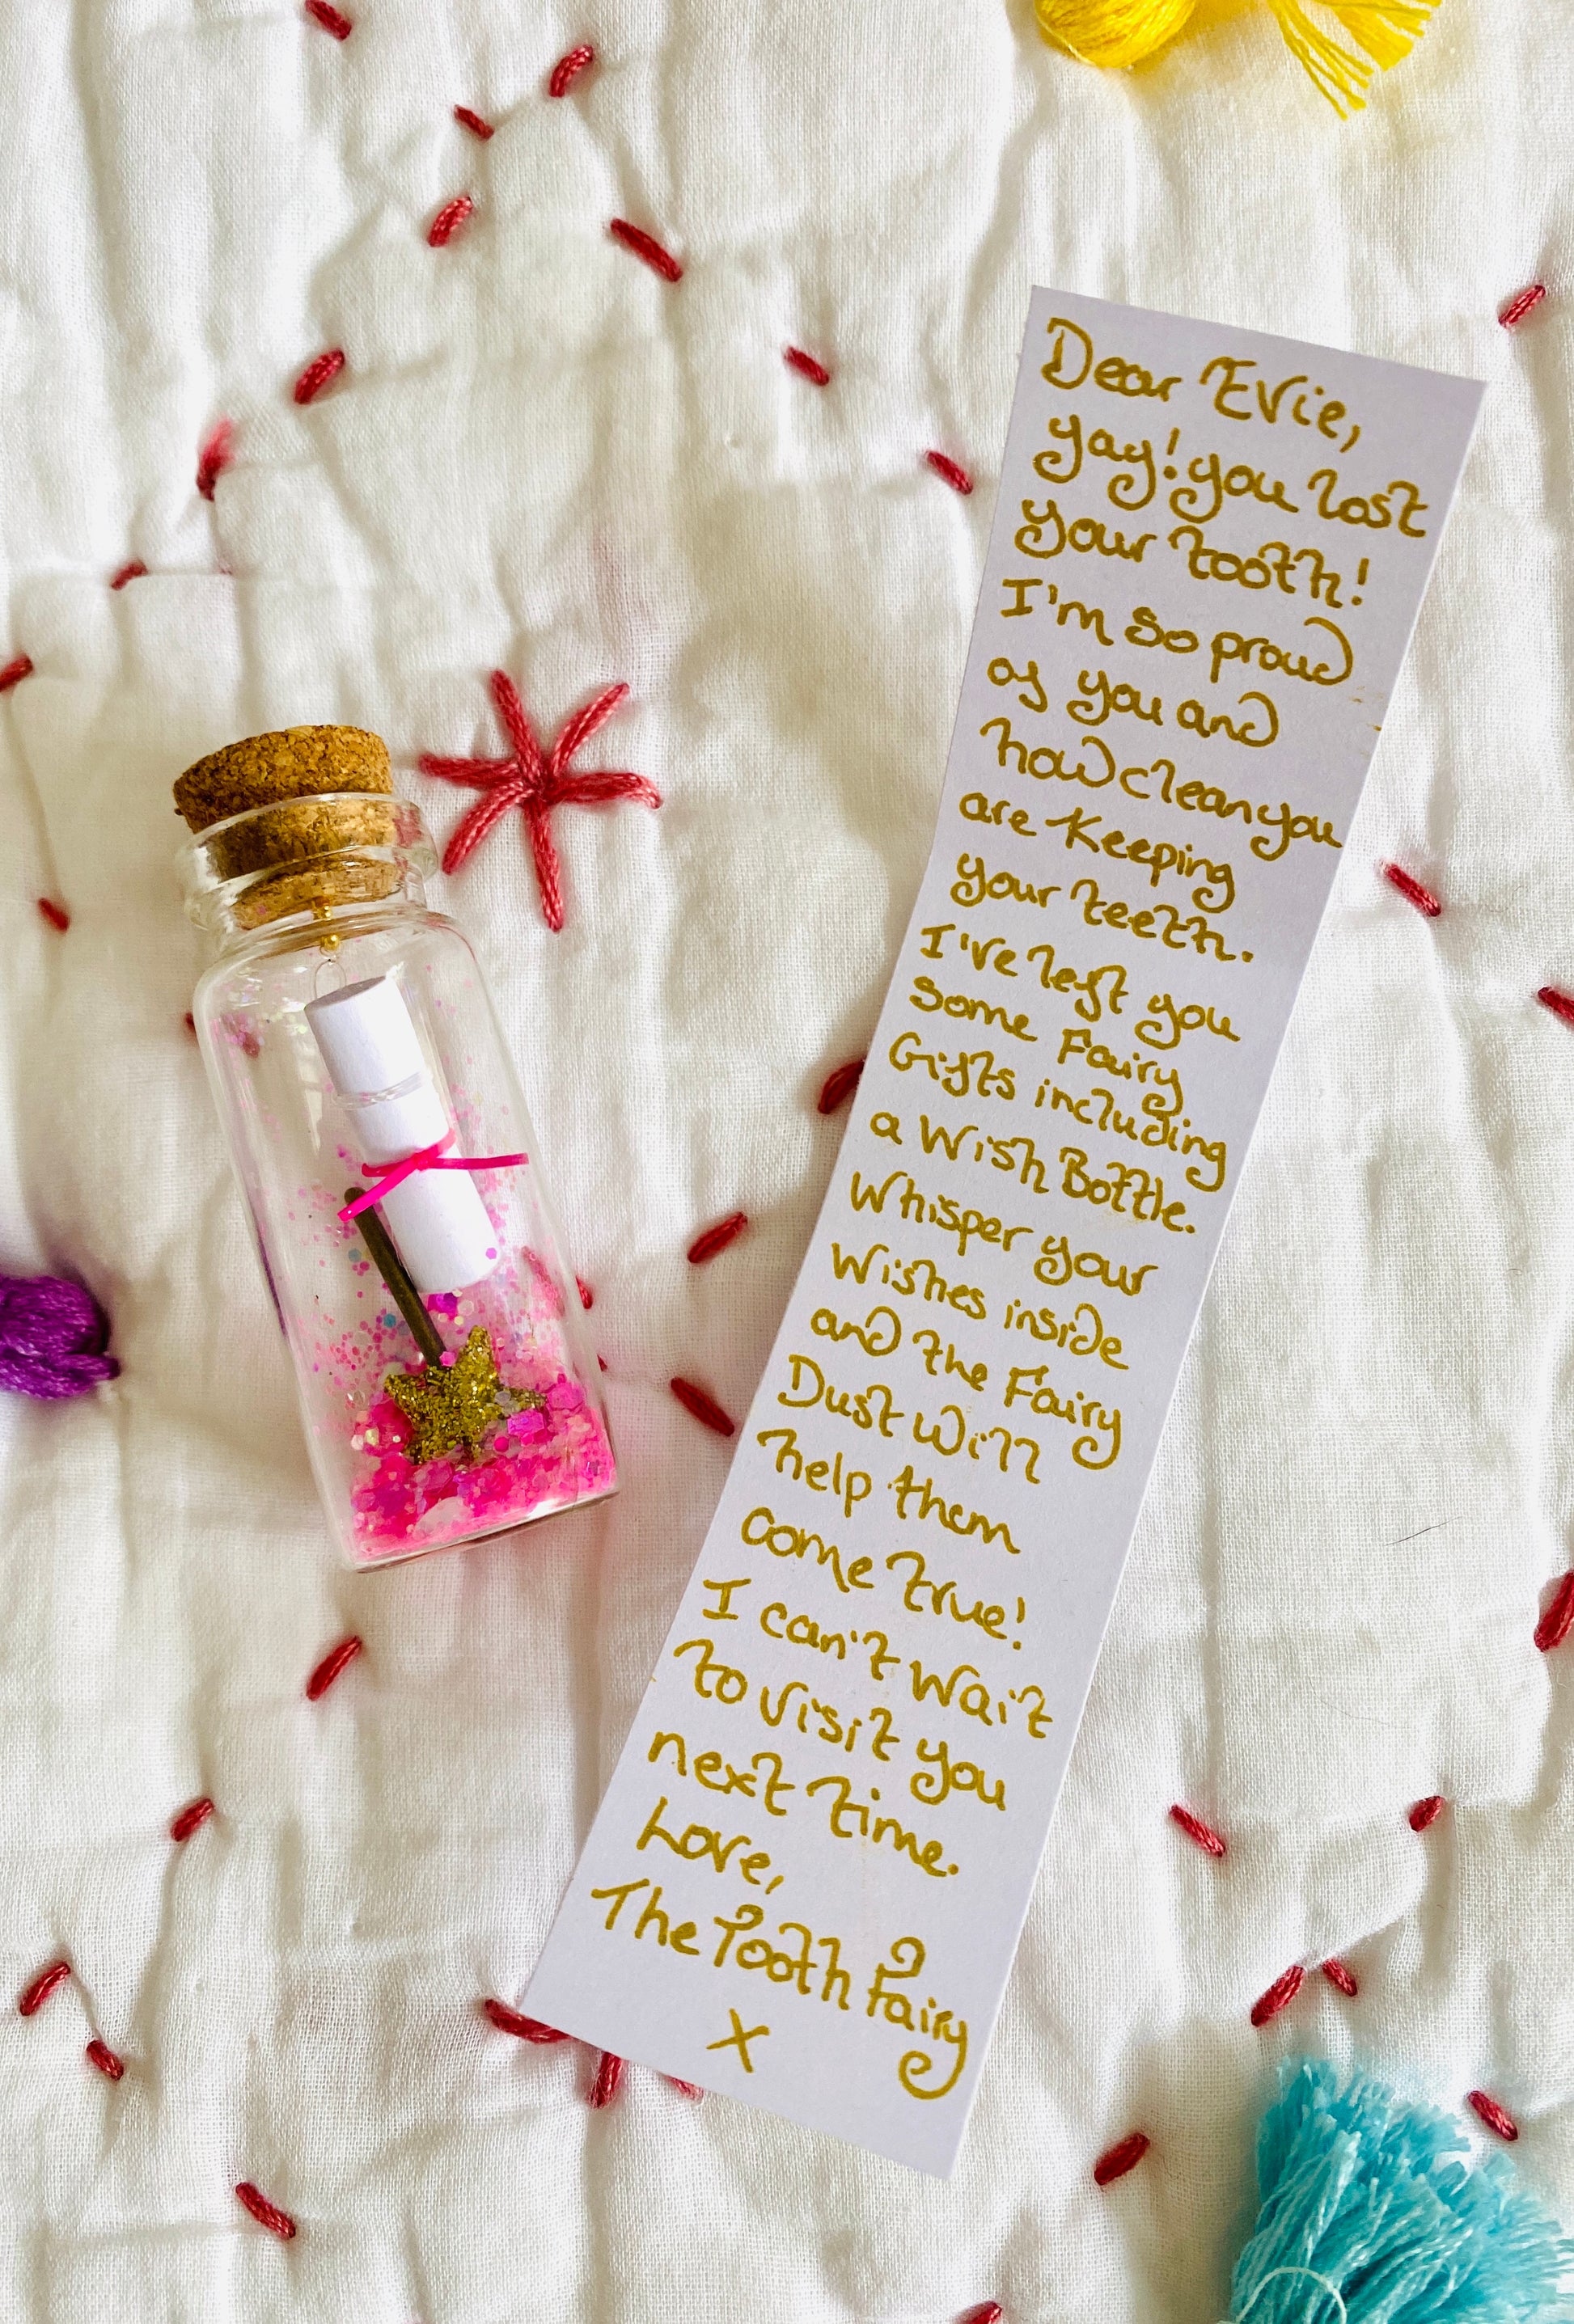 Dear Evie,
yay! you lost
your tooth!
I'm so proud
of you and
how clean you
are keeping
your teeth.
I've left you
some Fairy
Gifts including
a Wish Bottle.
Whisper your
Wishes inside
and the Fairy
Dust Will
help them
come true!
I can't Wait
to visit you
next time.
Love,
The Tooth Fairy
X